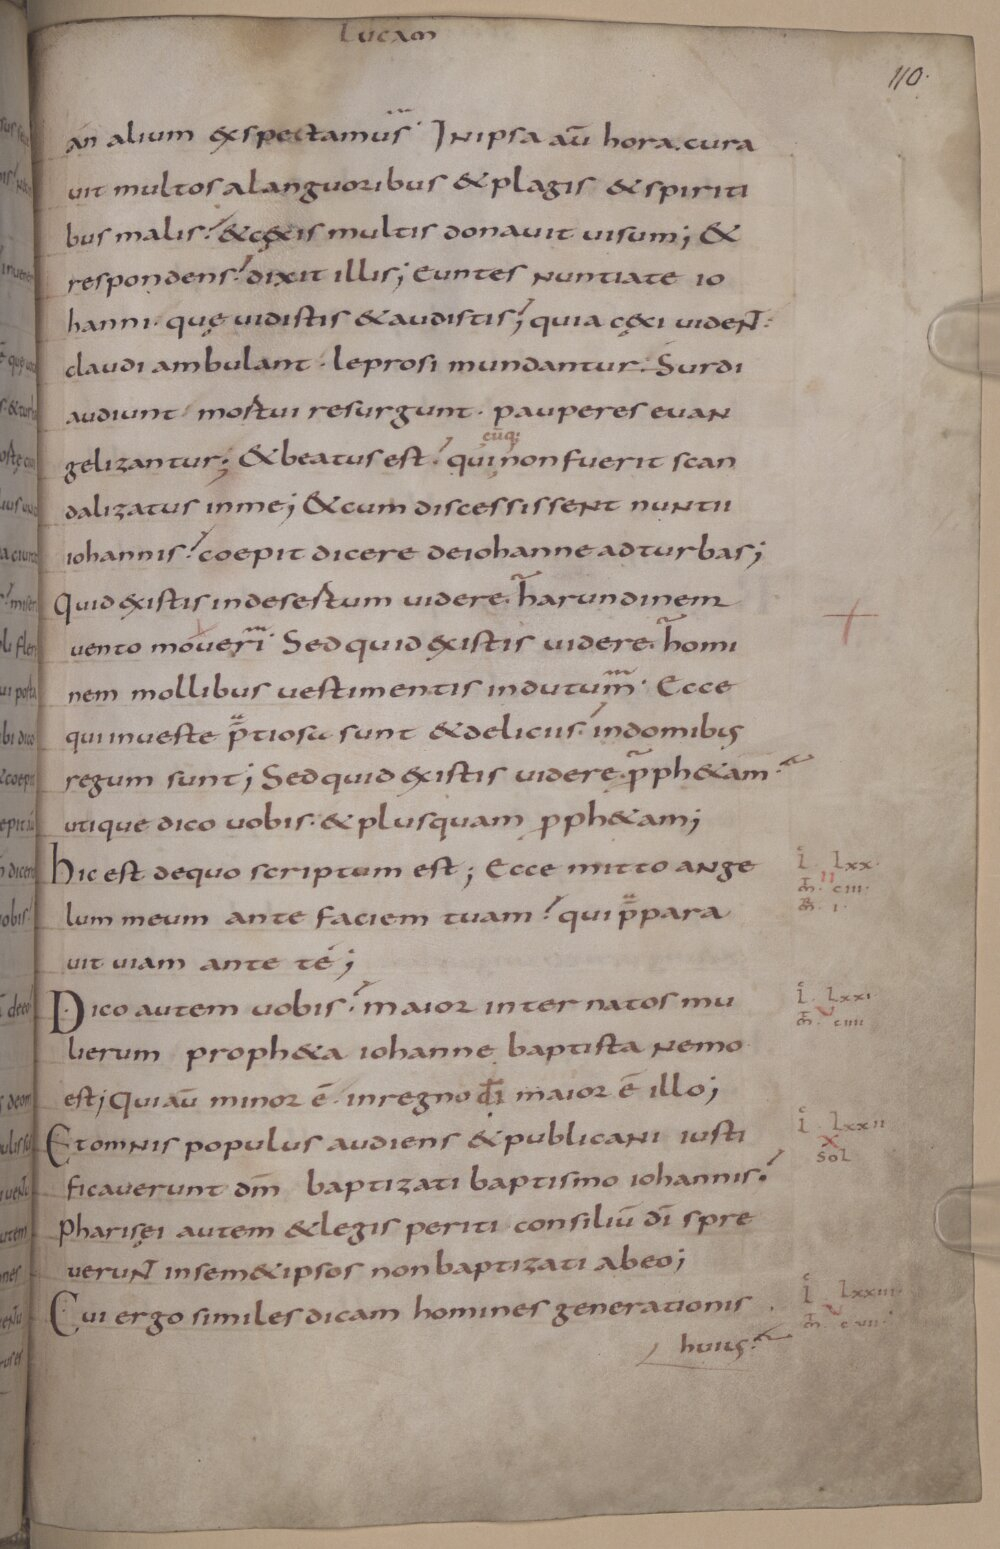 Lucam
110.
an alium exspectamus. In ipsa aū hora. cura
vit multos alanguoribus & plagis & spiriti
bus malis. & cęcis multis donavit visum; &
respondens. dixit illis; Euntes nuntiate io
hanni. quę vidistis & audistis; quia cęci vident.
claudi ambulant. leprosi mundantur. Surdi
audiunt mortui resurgunt. pauperes evan
cūq;
gelizantur; & beatus est. qui non fuerit scan
dalizatus inme; & cum discessissent nuntii
iohannis. coepit dicere deiohanne adturbas;
Quid existis indesertum videre. harundinem
vento moveri. Sed quid existis videre. homi
nem mollibus vestimentis indutum. Ecce
qui investe p̄tiosa sunt & deliciis. indomibus
regum sunt; Sed quid existis videre. pph&am.
utique dico vobis. & plusquam pph&am;
Hic est dequo scriptum est; Ecce mitto ange
lum meum ante faciem tuam. qui p̄para
vit viam ante té;
Dico autem vobis. maior inter natos mu
lierum proph&a iohanne baptista nemo
est; Qui aū minor ē. inregno dī maior ē illo;
Et omnis populus audiens & publicani iusti
ficaverunt dm̄ baptizati baptismo iohannis.
Pharisęi autem & legis periti consiliū dī spre
verunt insem&ipsos non baptizati abeo;
Cui ergo similes dicam homines generationis
huius.
l lxx.
m̄. ciii.
l lxxi
m̄. ciiii
l lxxii
x
sol
l lxxiii.
m̄. cvii.